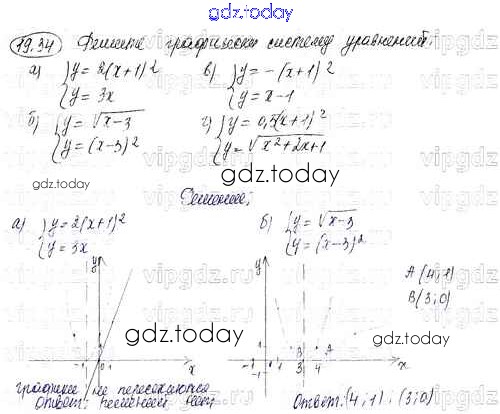 gdz.today
19.34 Решите графически систему уравнений:
а) { y = 2(x+1)²
y = 3x
в) { y = -(x+1)²
y = x-1
б) { y = √x-3
y = (x-3)²
г) { y = 0,5(x+1)²
y = √x²+2x+1
gdz.today
gdz.today
Решение:
а) { y = 2(x+1)²
y = 3x
б) { y = √x-3
y = (x-3)²
vipgdz.ru
A (4;1)
B (3;0)
gdz.today
gdz.today
графики не пересекаются
Ответ: решений нет
Ответ: (4;1); (3;0)